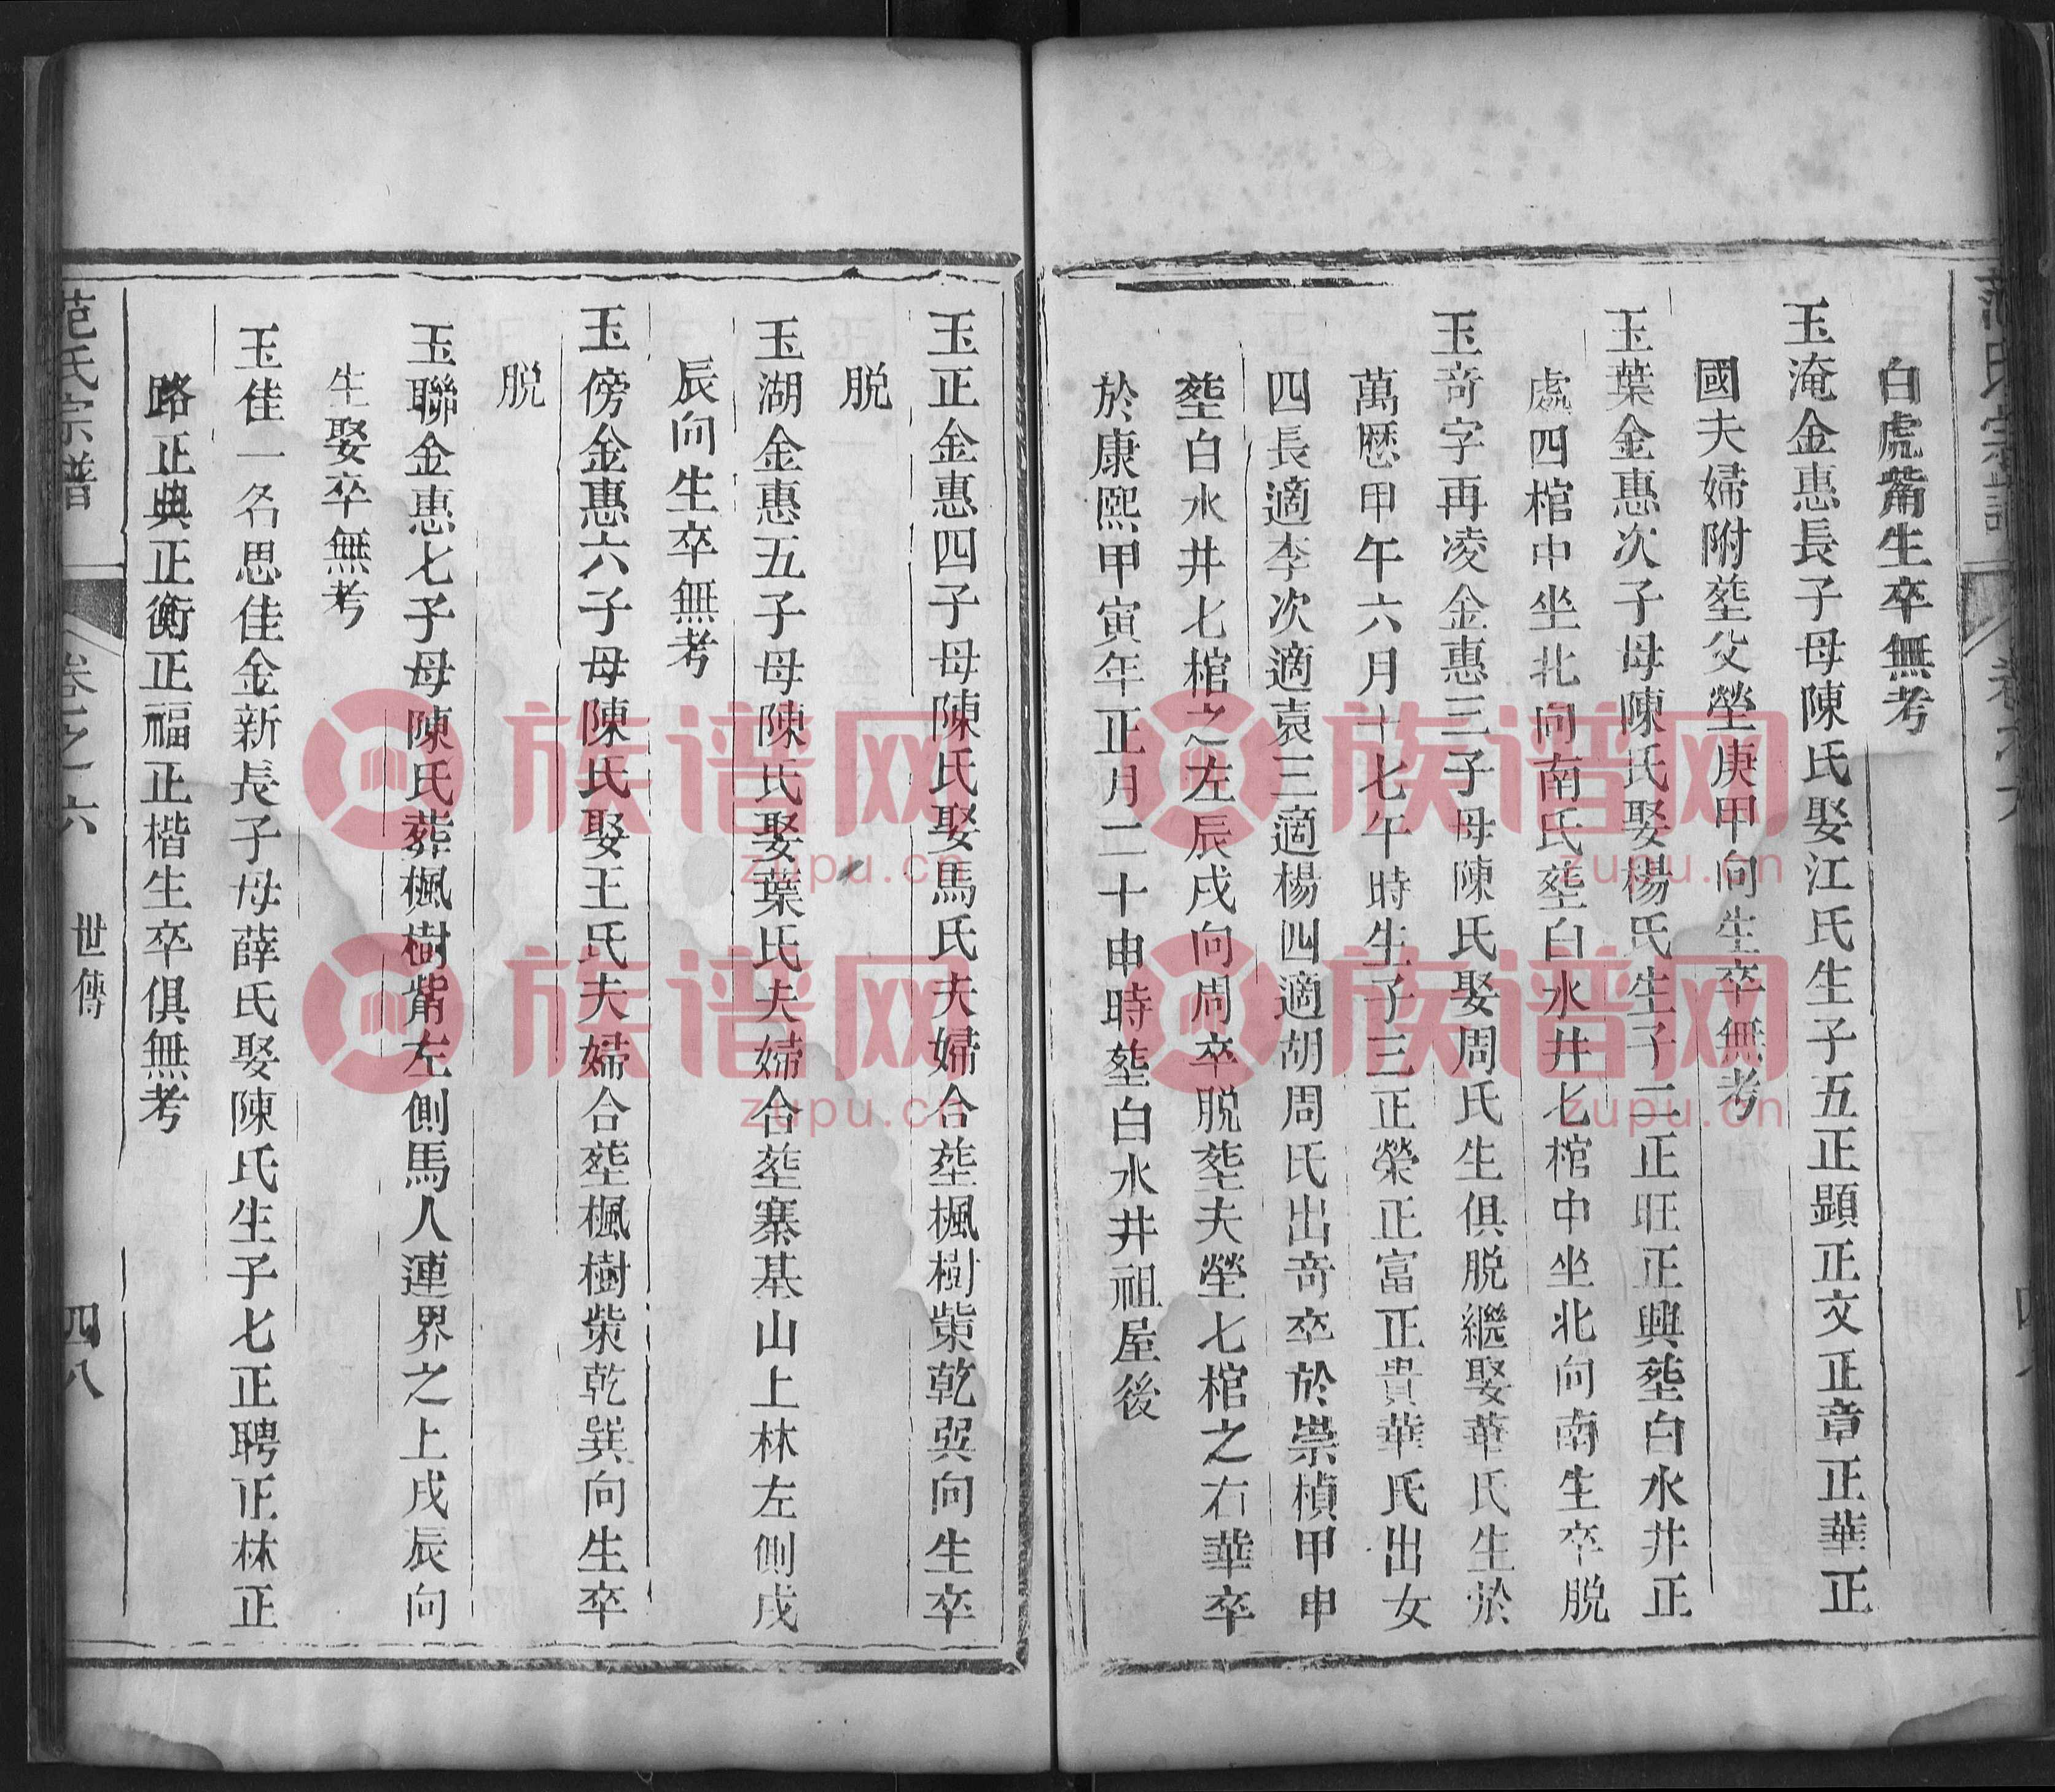 白虎觜生卒無考
玉淹金惠長子母陳氏娶江氏生子五正顕正文正章正華正
國夫婦附塟父塋庚甲向生卒無考
玉葉金惠次子母陳氏娶楊氏生子二正旺正興塟白水井正
處四棺中坐北向南氏塟白水井七棺中坐北向南生卒脱
玉奇字再凌金惠三子母陳氏娶周氏生俱脱繼娶華氏生於
萬厯甲午六月十七午時生子三正榮正富正貴華氏出女
四長適李次適袁三適楊四適胡周氏出奇卒於崇楨甲申
塟白水井七棺之左辰戌向周卒脱塟夫塋七棺之右華卒
於康熙甲寅年正月二十申時塟白水井祖屋後
玉正金惠四子母陳氏娶馬氏夫婦合塟楓樹觜乾巽向生卒
脱
玉湖金惠五子母陳氏娶葉氏夫婦合塟寨基山上林左側戌
辰向生卒無考
玉傍金惠六子母陳氏娶王氏夫婦合塟楓樹觜乾巽向生卒
脱
玉聯金惠七子母陳氏葬楓樹觜左側馬人連界之上戌辰向
生娶卒無考
玉佳一名思佳金新長子母薛氏娶陳氏生子七正聘正林正
路正典正衡正福正楷生卒俱無考
范氏宗譜 卷之六 世傳 四八
族谱网
zupu.cn
族谱网
zupu.cn
族谱网
zupu.cn
族谱网
zupu.cn